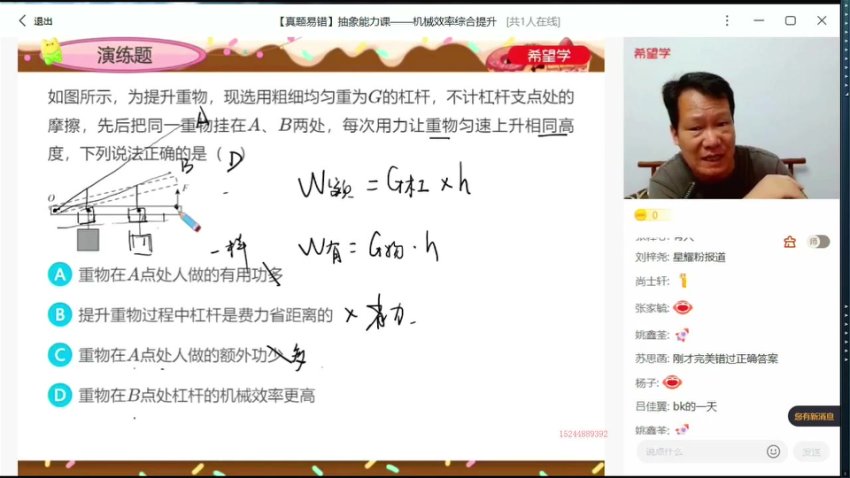 退出
【真题易错】抽象能力课——机械效率综合提升 [共1人在线]
演练题
希望学
如图所示，为提升重物，现选用粗细均匀重为G的杠杆，不计杠杆支点处的
摩擦，先后把同一重物挂在A、B两处，每次用力让重物匀速上升相同高
度，下列说法正确的是（D）
A
B
O
F
W额 = G杠 × h
一样
W有 = G物 · h
A 重物在A点处人做的有用功多
B 提升重物过程中杠杆是费力省距离的 × 省力
C 重物在A点处人做的额外功少 多
D 重物在B点处杠杆的机械效率更高
15244889392
希望学
0
师
刘梓尧: 星耀粉报道
尚士轩:
张家毓:
姚鑫荃:
苏思菡: 刚才完美错过正确答案
杨子:
吕佳翼: bk的一天
您有新消息
姚鑫荃:
说点什么
发送